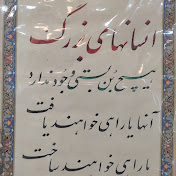 انسانهای بزرگ
هیچ بُن بستی وجُود ندارد
آنها یا راهی خواهند یافت
یا راهی خواهند ساخت